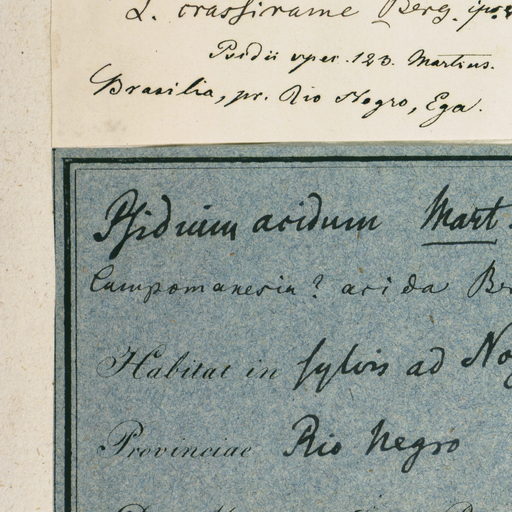 L. crassirame Berg.
Psidii spec. 123. Martius.
Brasilia, pr. Rio Negro, Ega.
Psidium acidum Mart.
Campomanesia? acida Be
Habitat in sylvis ad Nog
Provinciae Rio Negro